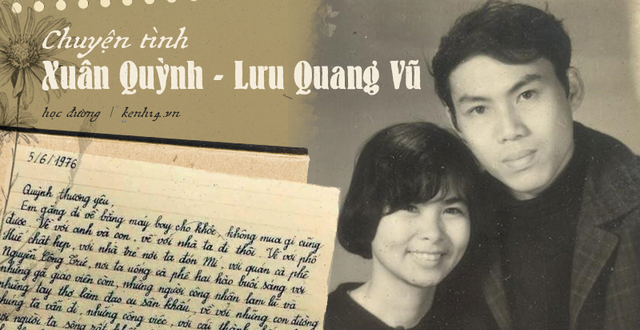 Chuyện tình
Xuân Quỳnh - Lưu Quang Vũ
học đường | kenh14.vn
5/6/1976
Quỳnh thương yêu,
Em gắng đi về bằng máy bay cho khỏe, không mua gì cũng
được. Về với anh và con, về với nhà ta đi thôi. Về với phố
Huế chật hẹp, với nhà trẻ nơi ta đón Mí, với quán cà phê
Nguyễn Công Trứ, nơi ta uống cà phê hai hào buổi sáng với
những gã giáo viên còm, những người công nhân lam lũ và
những tay thợ làm đạo cụ sân khấu, về với những con đường
chúng ta vẫn đi, những công việc, với cái thành
người ta sống rất